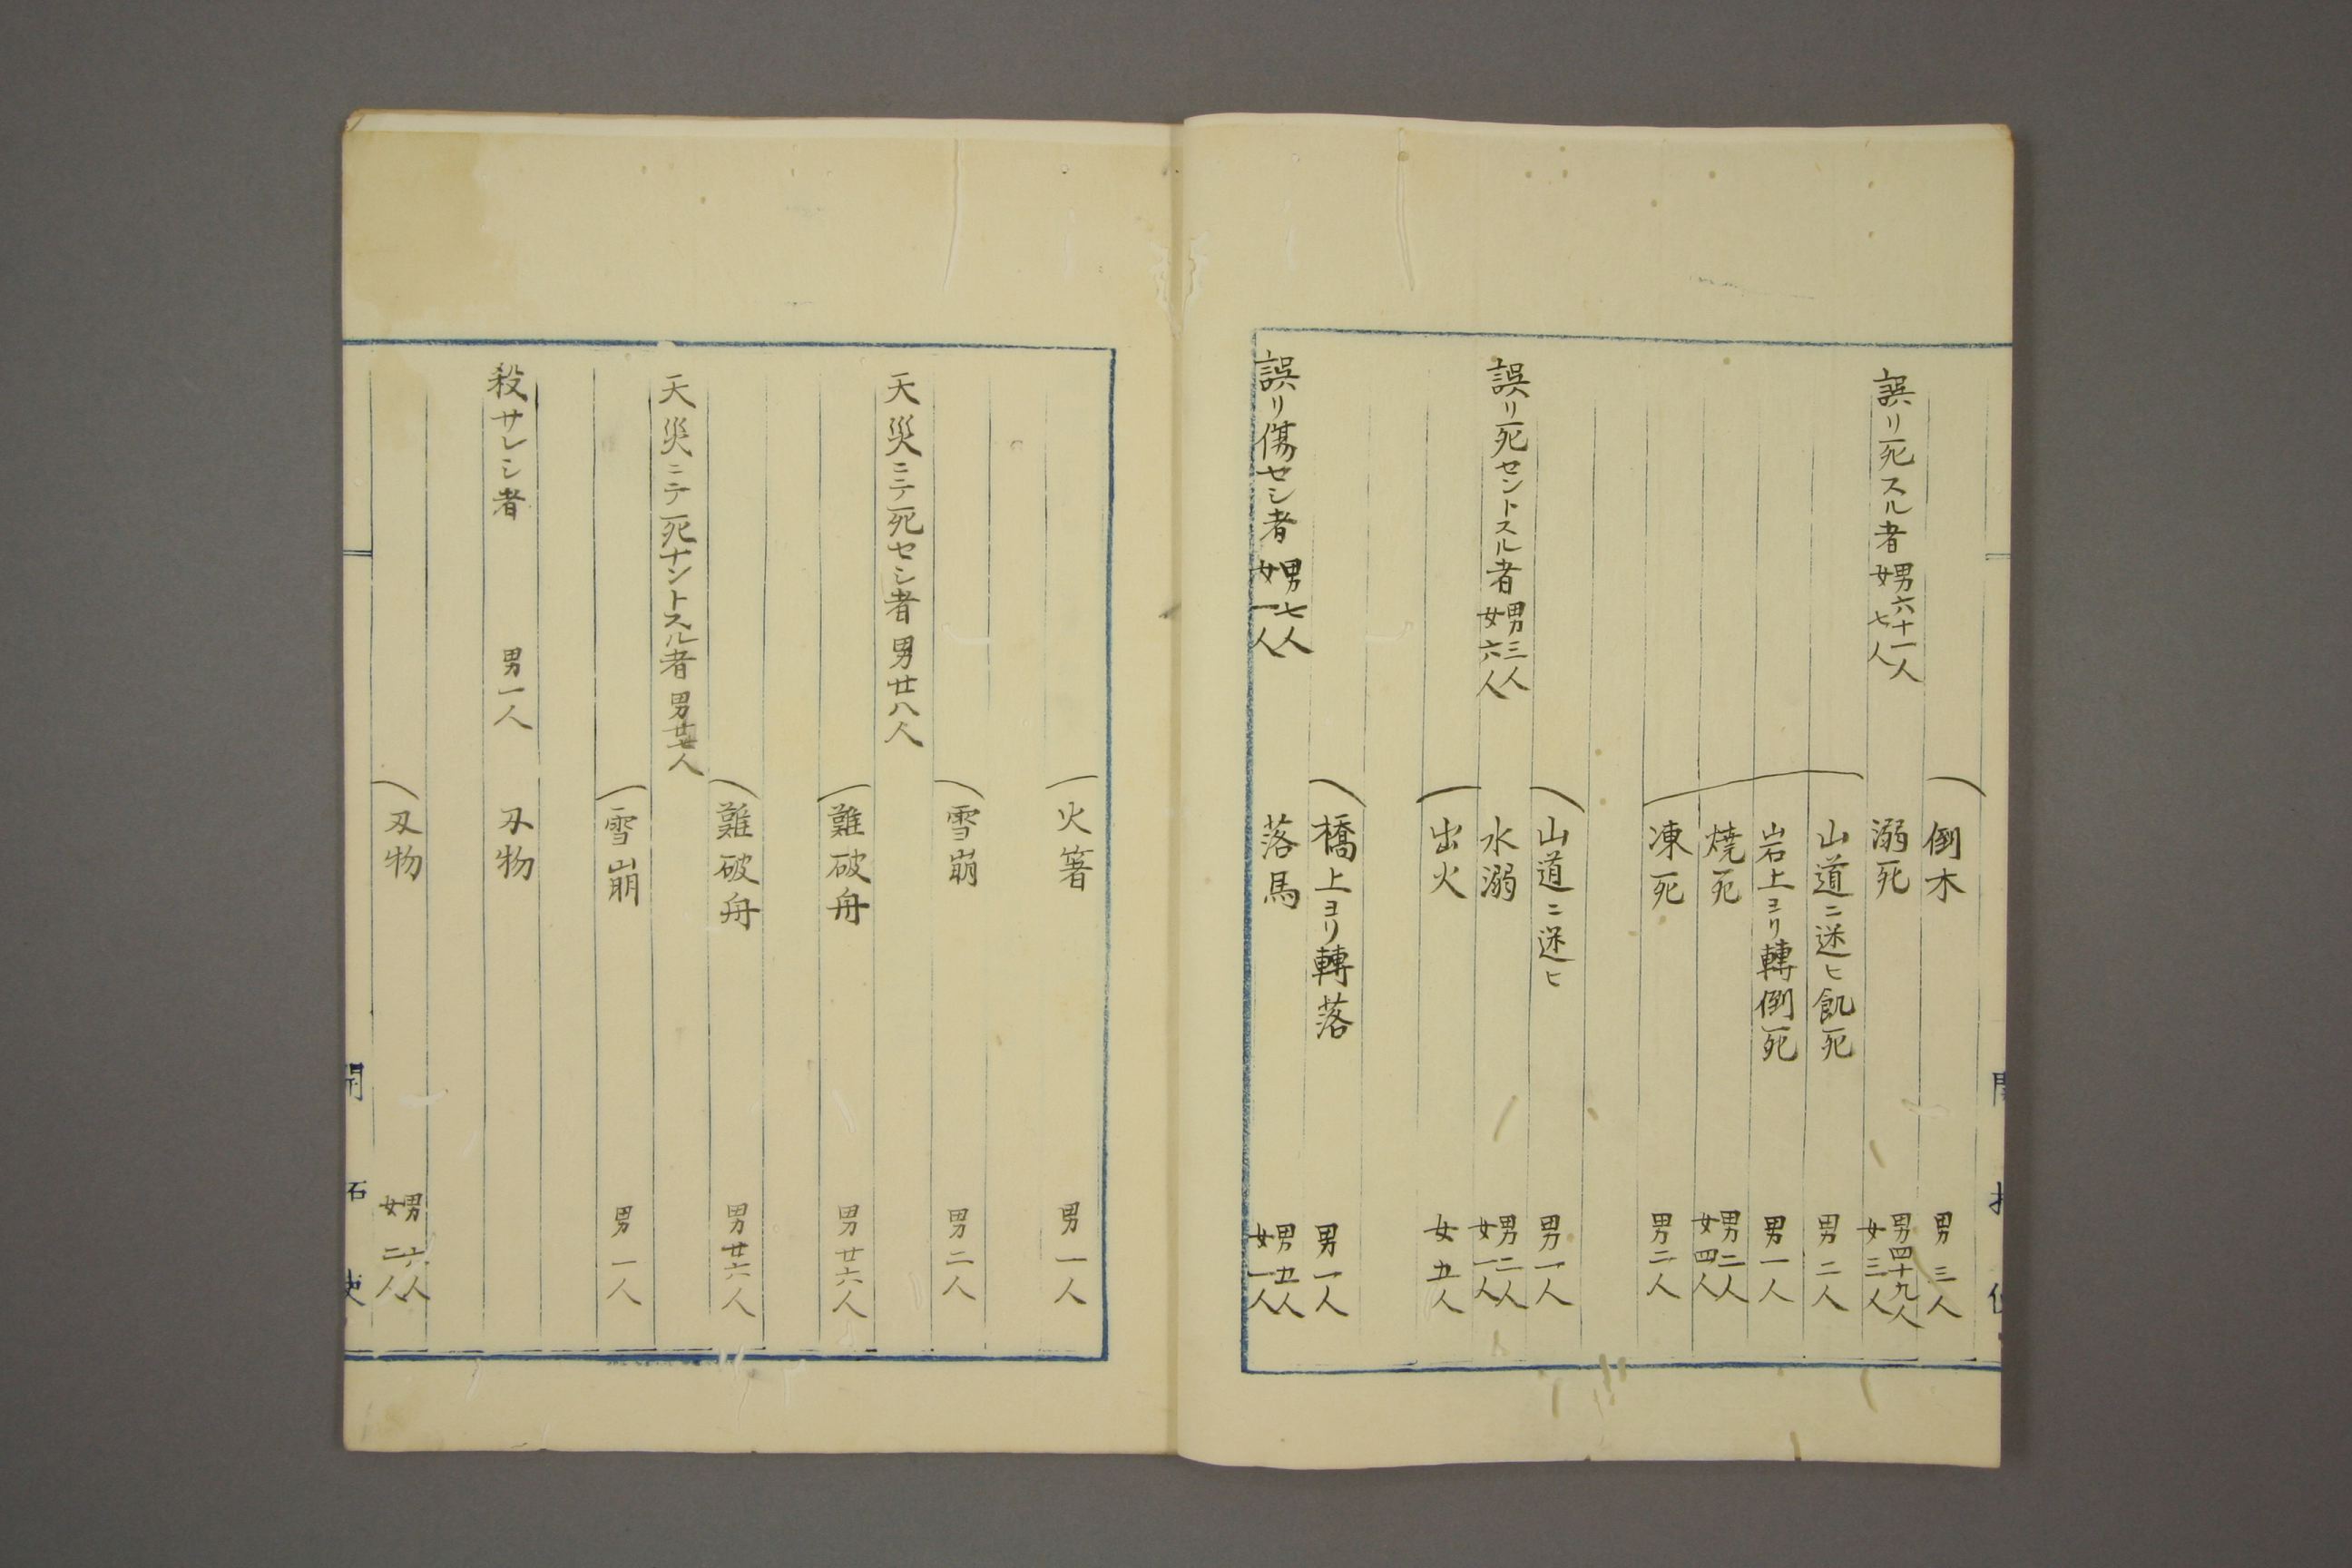 倒木 男三人
誤リ死スル者 男六十一人 女七人 溺死 男四十九人 女三人
山道ニ迷ヒ飢死 男二人
岩上ヨリ轉倒死 男一人
焼死 男二人 女四人
凍死 男二人
山道ニ迷ヒ 男一人
誤リ死セントスル者 男三人 女六人 水溺 男二人 女一人
出火 女五人
橋上ヨリ轉落 男一人
誤リ傷セシ者 男七人 女一人 落馬 男五人 女一人
火箸 男一人
雪崩 男二人
天災ニテ死セシ者 男廿八人
難破舟 男廿六人
難破舟 男廿六人
天災ニテ死ナントスル者 男廿七人
雪崩 男一人
殺サレシ者 男一人 刃物
刃物 男六人 女二人
開 拓 使